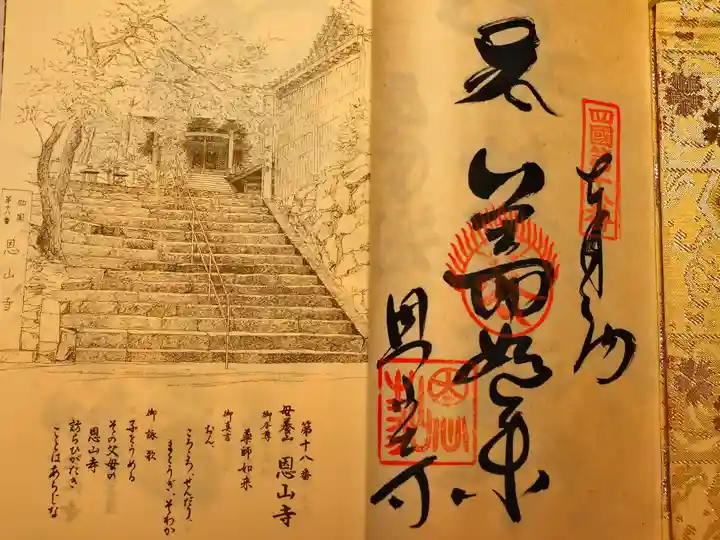 第十八番
恩山寺
第十八番
母養山 恩山寺
御本尊
薬師如来
御真言
おん、
ころころ、せんだり、
まとうぎ、そわか
御詠歌
子をうめる
その父母の
恩山寺
訪らひがたき
ことはあらじな
四國第十八番
薬師如来
恩山寺